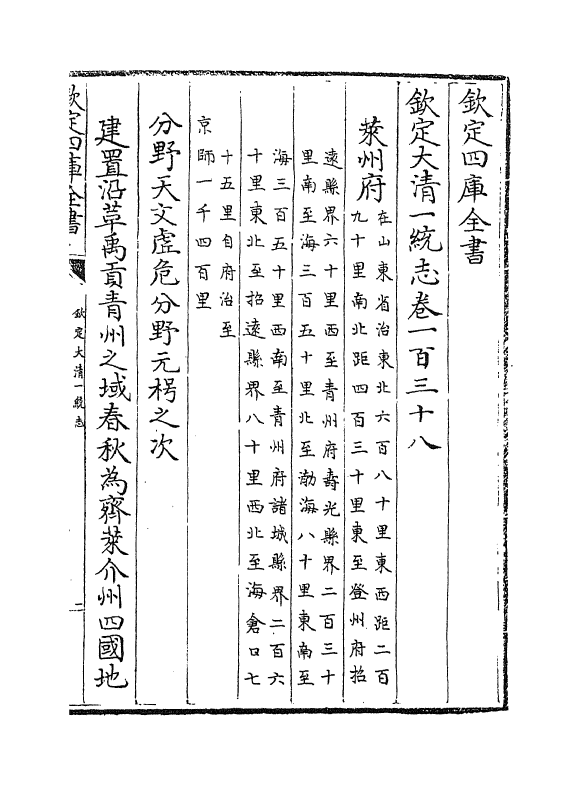 欽定四庫全書
欽定大清一統志卷一百三十八
萊州府
在山東省治東北六百八十里東西距二百
九十里南北距四百三十里東至登州府招
遠縣界六十里西至青州府壽光縣界二百三十
里南至海三百五十里北至渤海八十里東南至
海三百五十里西南至青州府諸城縣界二百六
十里東北至招遠縣界八十里西北至海倉口七
十五里自府治至
京師一千四百里
分野天文虛危分野元枵之次
建置沿革禹貢青州之域春秋為齊萊介州四國地
欽定四庫全書
欽定大清一統志